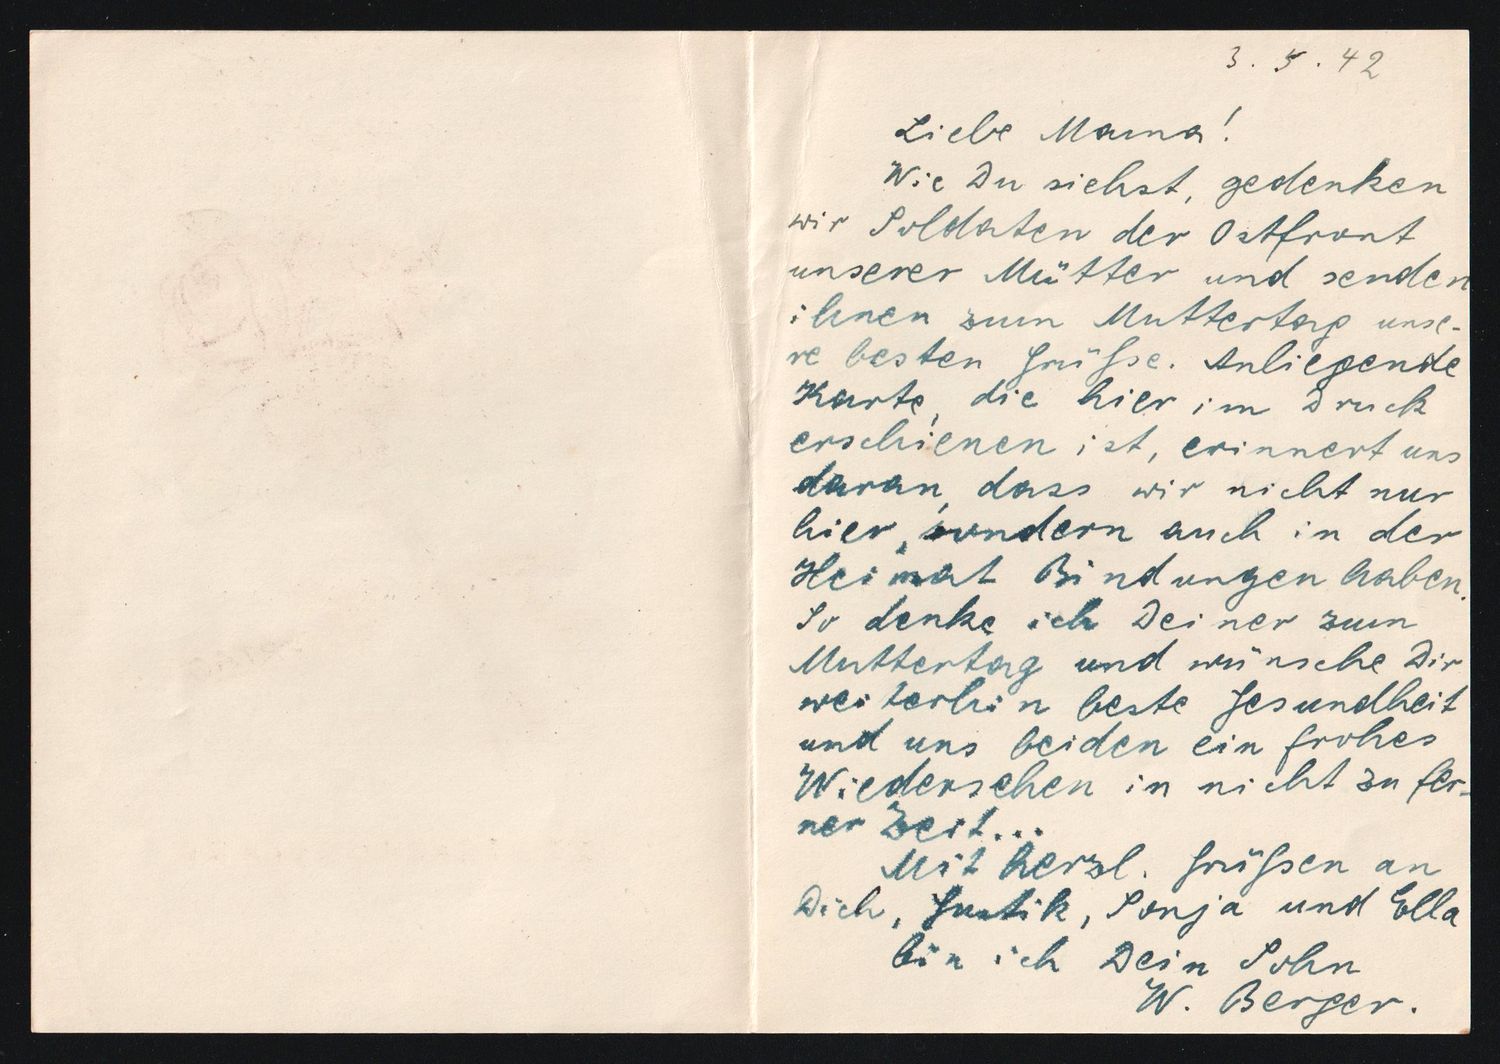 3. 5. 42
Liebe Mama!
Wie Du siehst, gedenken
wir Soldaten der Ostfront
unserer Mütter und senden
ihnen zum Muttertag unse-
re besten Grüsse. Anliegende
Karte, die hier im Druck
erschienen ist, erinnert uns
daran, dass wir nicht nur
hier, sondern auch in der
Heimat Bindungen haben.
So denke ich Deiner zum
Muttertag und wünsche Dir
weiterhin beste Gesundheit
und uns beiden ein frohes
Wiedersehen in nicht zu fer-
ner Zeit...
Mit herzl. Grüssen an
Dich, Gustik, Sonja und Ella
bin ich Dein Sohn
W. Berger.